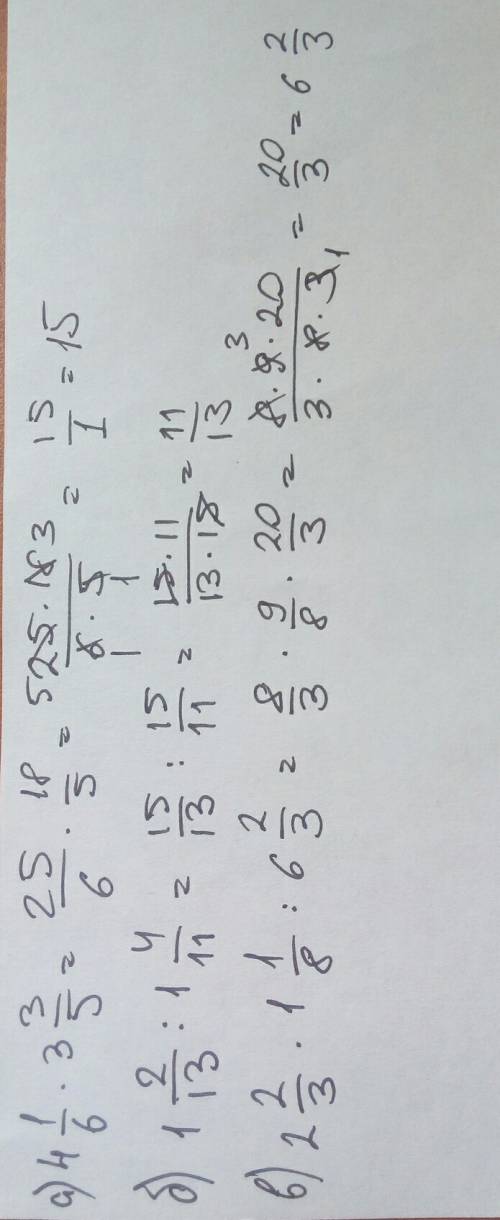 а) 4 1/6 · 3 3/5 = 25/6 · 18/5 = 5 25 · 18 3 / 6 · 5 1 1 = 15/1 = 15
б) 1 2/13 : 1 4/11 = 15/13 : 15/11 = 15 · 11 / 13 · 15 = 11/13
в) 2 2/3 · 1 1/8 : 6 2/3 = 8/3 · 9/8 · 20/3 = 8 · 9 3 · 20 / 3 · 8 · 3 1 = 20/3 = 6 2/3